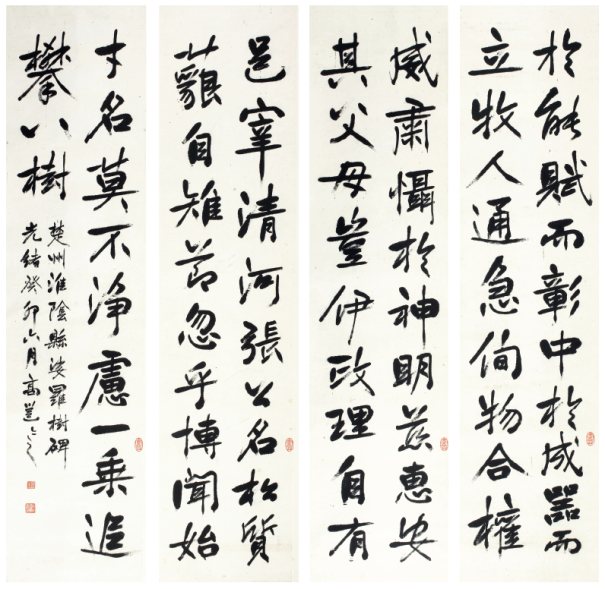 於能賦而彰中於成器而
立牧人通急侚物合權
威肅懾於神明慈惠安
其父母豈伊政理自有
邑宰清河張公名松質
藐自雉節忽乎博聞始
才名莫不淨慮一乘追
攀八樹
楚州淮陰縣娑羅樹碑
光緒癸卯六月高邕之